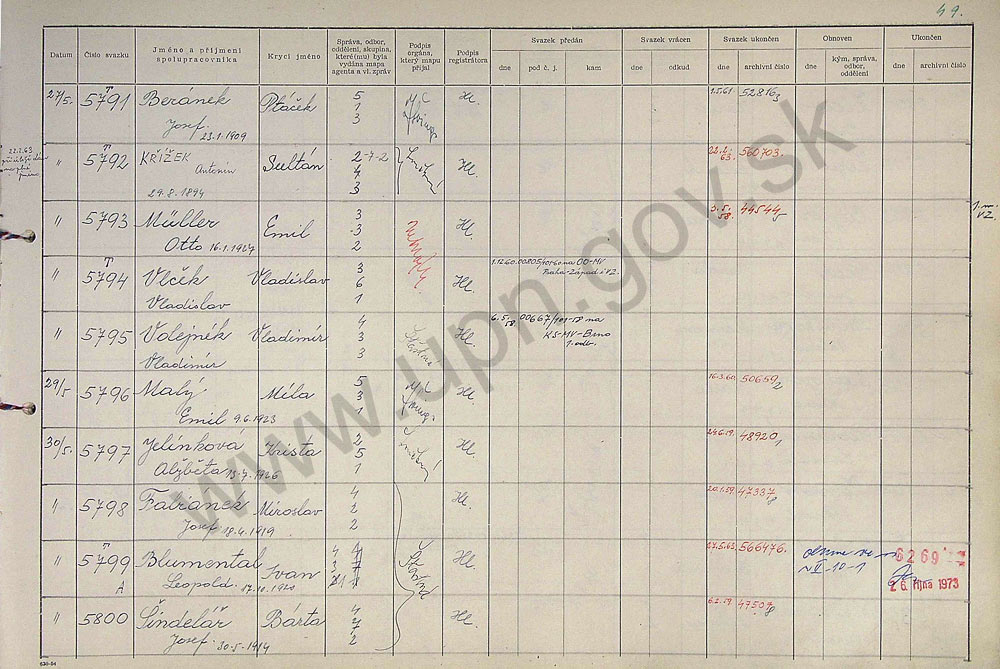 49.
Datum Číslo svazku Jméno a příjmení spolupracovníka Krycí jméno Správa, odbor, oddělení, skupina, které(mu) byla vydána mapa agenta a vl. zpráv Podpis orgána, který mapu přijal Podpis registrátora Svazek předán Svazek vrácen Svazek ukončen Obnoven Ukončen
dne pod č. j. kam dne odkud dne archivní číslo dne kým, správa, odbor, oddělení dne archivní číslo
27/5. T 5791 Beránek Ptáček 5 1 3 Hl. 1.5.61 52816 3
Josef 23.1.1909
22.2.63
" T 5792 KŘÍŽEK Sultán 2-7-2 4 3 Hl. 22.2.63. 560703.
Antonín
29.8.1894
" 5793 Müller Emil 3 3 2 Hl. 3.5.58. 44544 5
Otto 16.1.1927
VZ
" T 5794 Vlček Vladislav 3 6 1 Hl. 1.12.60 OO-MV
Praha-Západ
Vladislav
" 5795 Volejník Vladimír 4 3 3 Šťastná Hl. 6.5.58 00667/101-58 na
KS-MV-Brno
1.odb.
Vladimír
29/5 5796 Malý Míla 5 3 1 Hl. 16.3.60 50659 2
Emil 9.6.1923
30/5. 5797 Jelínková Krista 2 5 1 Hl. 48920 1
Alžběta 13.7.1926
" 5798 Fatránek Miroslav 4 2 2 Hl. 20.1.59 47337 8
Josef 18.4.1919
" T 5799 Blumental Ivan Šťastná Hl. 27.5.63 566476.
A Leopold. 17.10.1920
6269
26. října 1973
" 5800 Šindelář Bárta 4 7 2 Hl. 47507 8
Josef 30.5.1914
630-54
www.upn.gov.sk